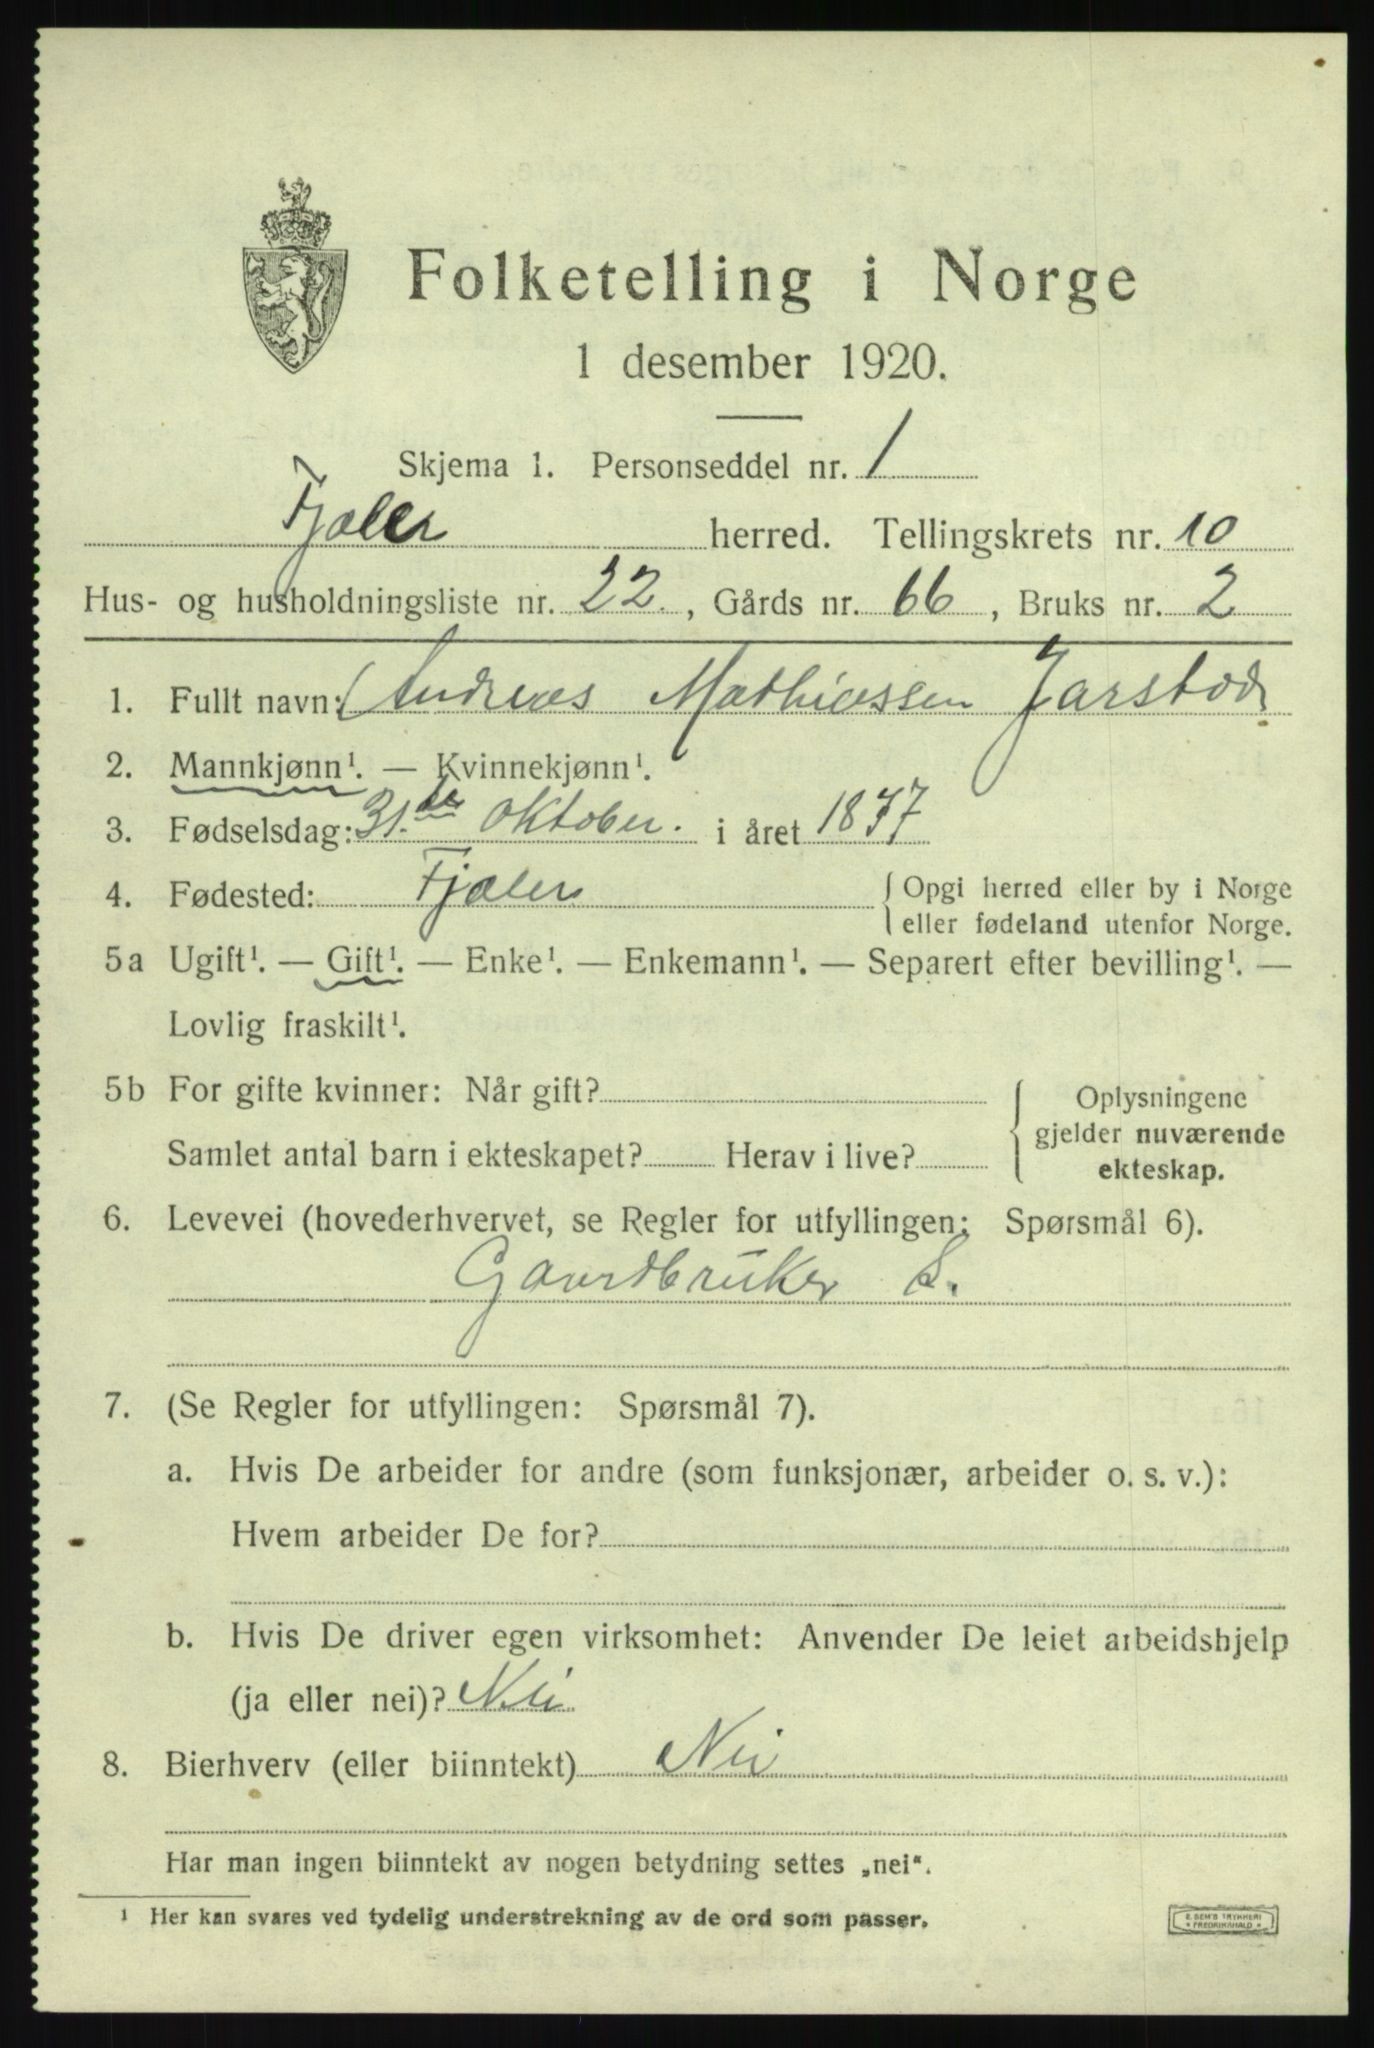 Folketelling i Norge
1 desember 1920.
Skjema 1. Personseddel nr. 1
Fjaler herred. Tellingskrets nr. 10
Hus- og husholdningsliste nr. 22. , Gårds nr. 66 , Bruks nr. 2
1. Fullt navn: Andreas Mathiassen Jarstad
2. Mannkjønn¹. — Kvinnekjønn¹.
3. Fødselsdag: 31. te Oktober. i året 1877
4. Fødested: Fjaler { Opgi herred eller by i Norge
eller fødeland utenfor Norge.
5a Ugift¹. — Gift¹. — Enke¹. — Enkemann¹. — Separert efter bevilling¹. —
Lovlig fraskilt¹.
5b For gifte kvinner: Når gift? { Oplysningene
gjelder nuværende
Samlet antal barn i ekteskapet? Herav i live?
ekteskap.
6. Levevei (hovederhvervet, se Regler for utfyllingen: Spørsmål 6).
Gaardbruker S.
7. (Se Regler for utfyllingen: Spørsmål 7).
a. Hvis De arbeider for andre (som funksjonær, arbeider o. s. v.):
Hvem arbeider De for?
b. Hvis De driver egen virksomhet: Anvender De leiet arbeidshjelp
(ja eller nei)? Nei
8. Bierhverv (eller biinntekt) Nei
Har man ingen biinntekt av nogen betydning settes „nei“.
¹ Her kan svares ved tydelig understrekning av de ord som passer.
E. SEM'S TRYKKERI
* FREDRIKSHALD *